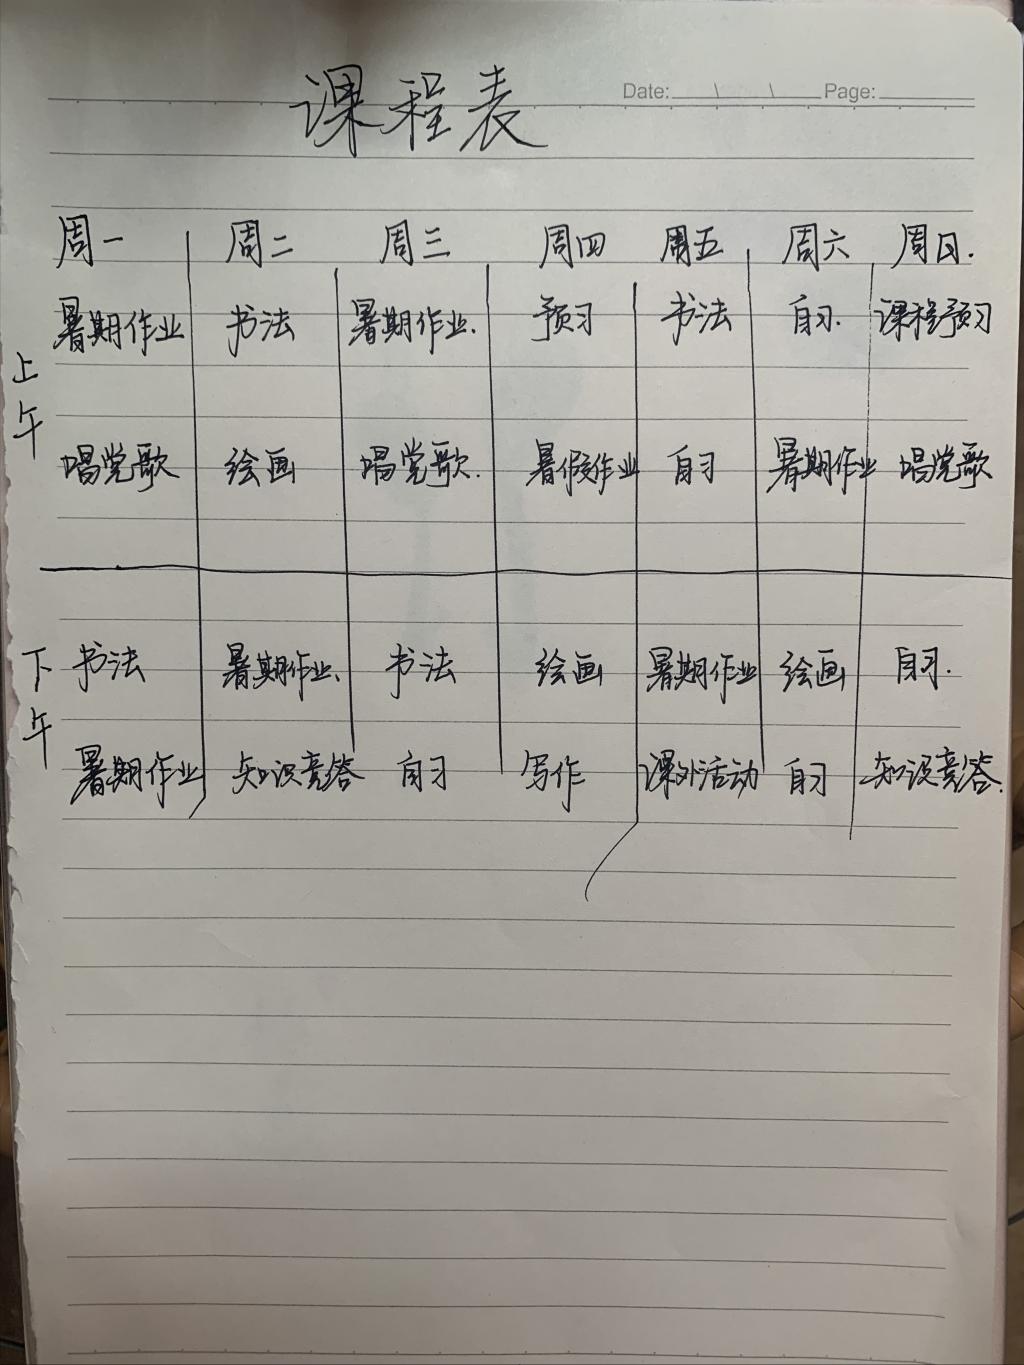 Date: \ \ Page:
课程表
周一 周二 周三 周四 周五 周六 周日.
暑期作业 书法 暑期作业. 预习 书法 自习. 课程预习
上午
唱党歌 绘画 唱党歌. 暑假作业 自习 暑期作业 唱党歌
下午
书法 暑期作业、 书法 绘画 暑期作业 绘画 自习.
暑期作业 知识竞答 自习 写作 课外活动 自习 知识竞答.